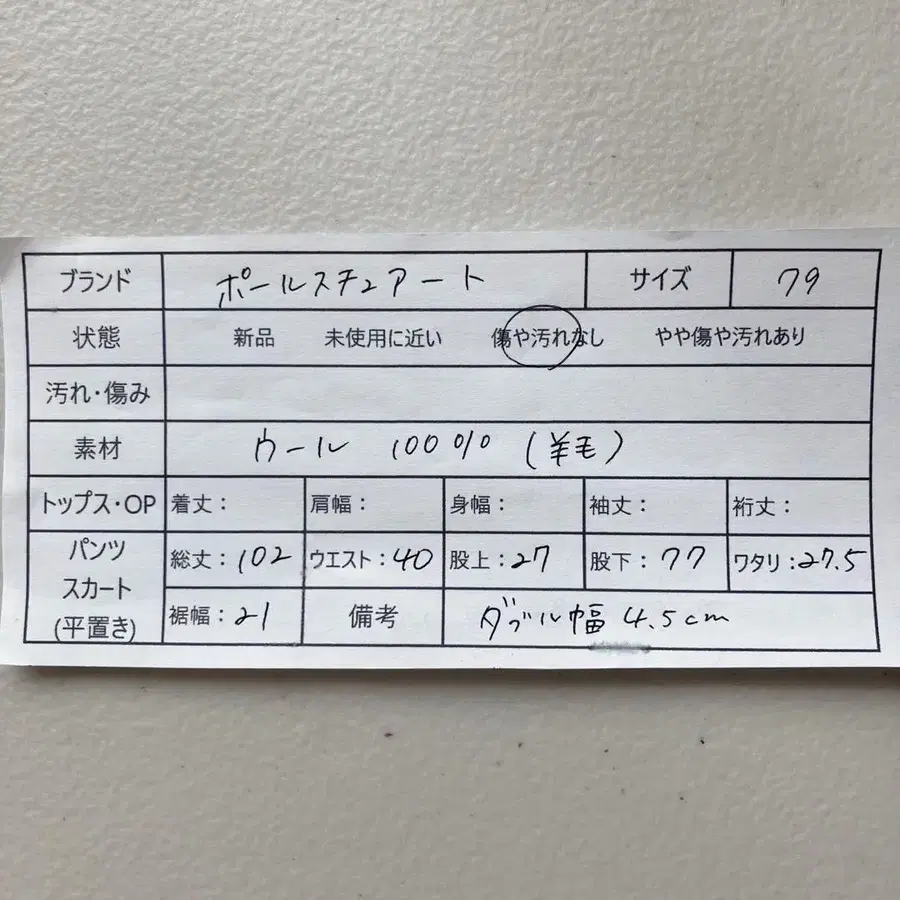 ブランド ポールスチュアート サイズ 79
状態 新品 未使用に近い 傷や汚れなし やや傷や汚れあり
汚れ・傷み
素材 ウール 100% (羊毛)
トップス・OP 着丈: 肩幅: 身幅: 袖丈: 裄丈:
パンツ スカート (平置き)
総丈:102 ウエスト:40 股上:27 股下:77 ワタリ:27.5
裾幅:21 備考 ダブル幅 4.5cm